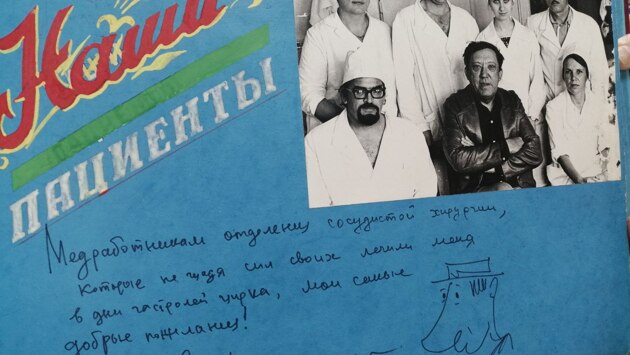 Наши
ПАЦИЕНТЫ
Медработникам отделения сосудистой хирургии,
которые не щадя сил своих лечили меня
в дни гастролей цирка, мои самые
добрые пожелания!